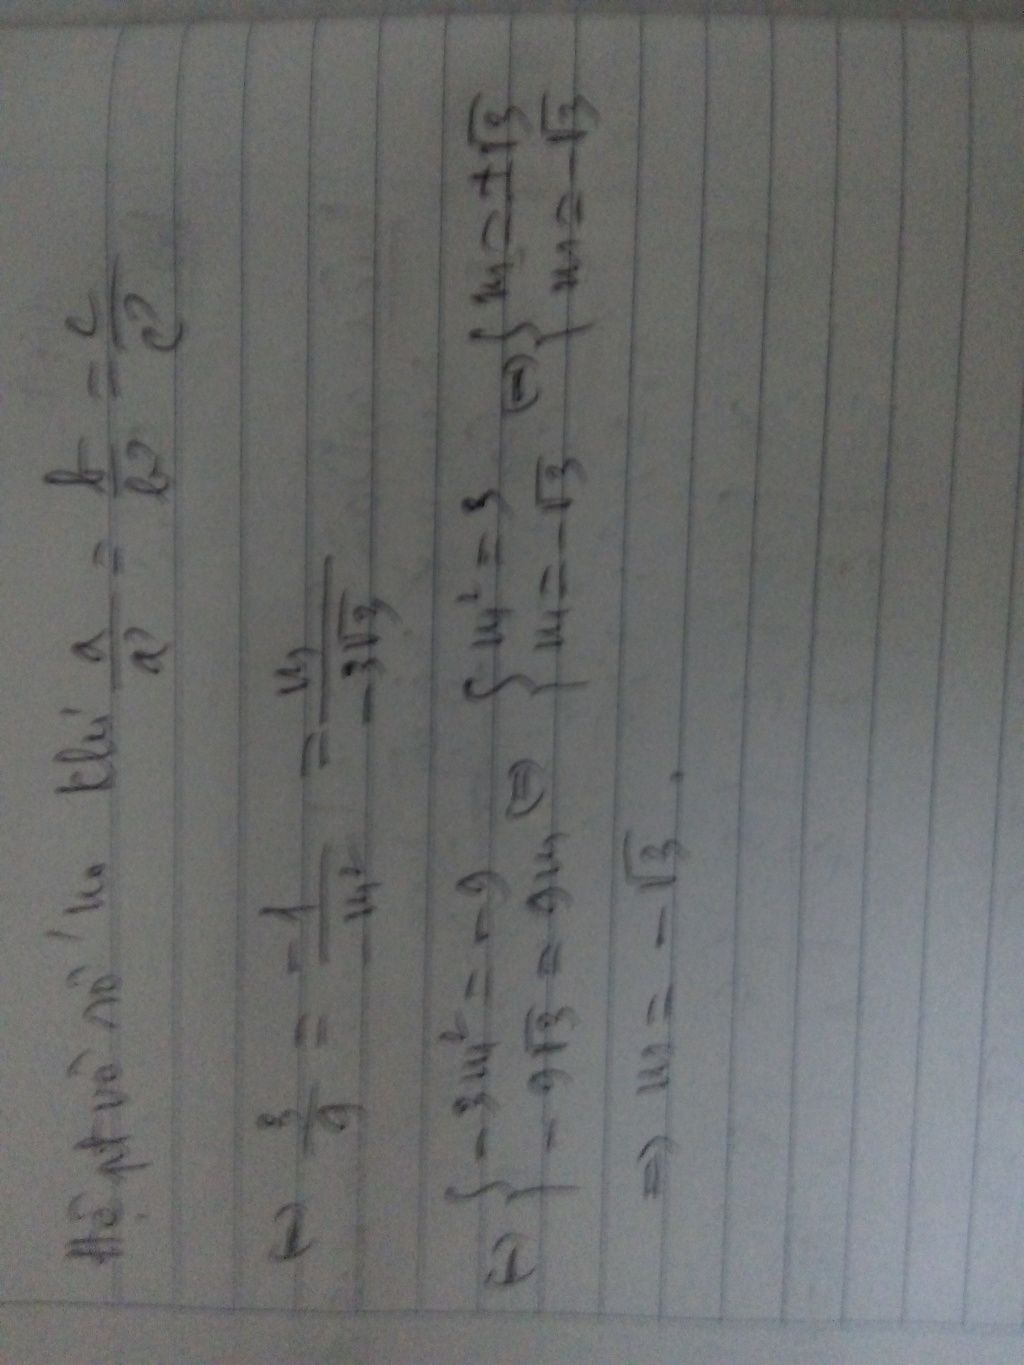 Hệ pt vô số n₀ khi a/a' = b/b' = c/c'
(=) 3/9 = -1/-m² = m/-3√3
(=) { -3m² = -9 ; -9√3 = 9m (=) { m² = 3 ; m = -√3 (=) { m = ±√3 ; m = -√3
=> m = -√3.